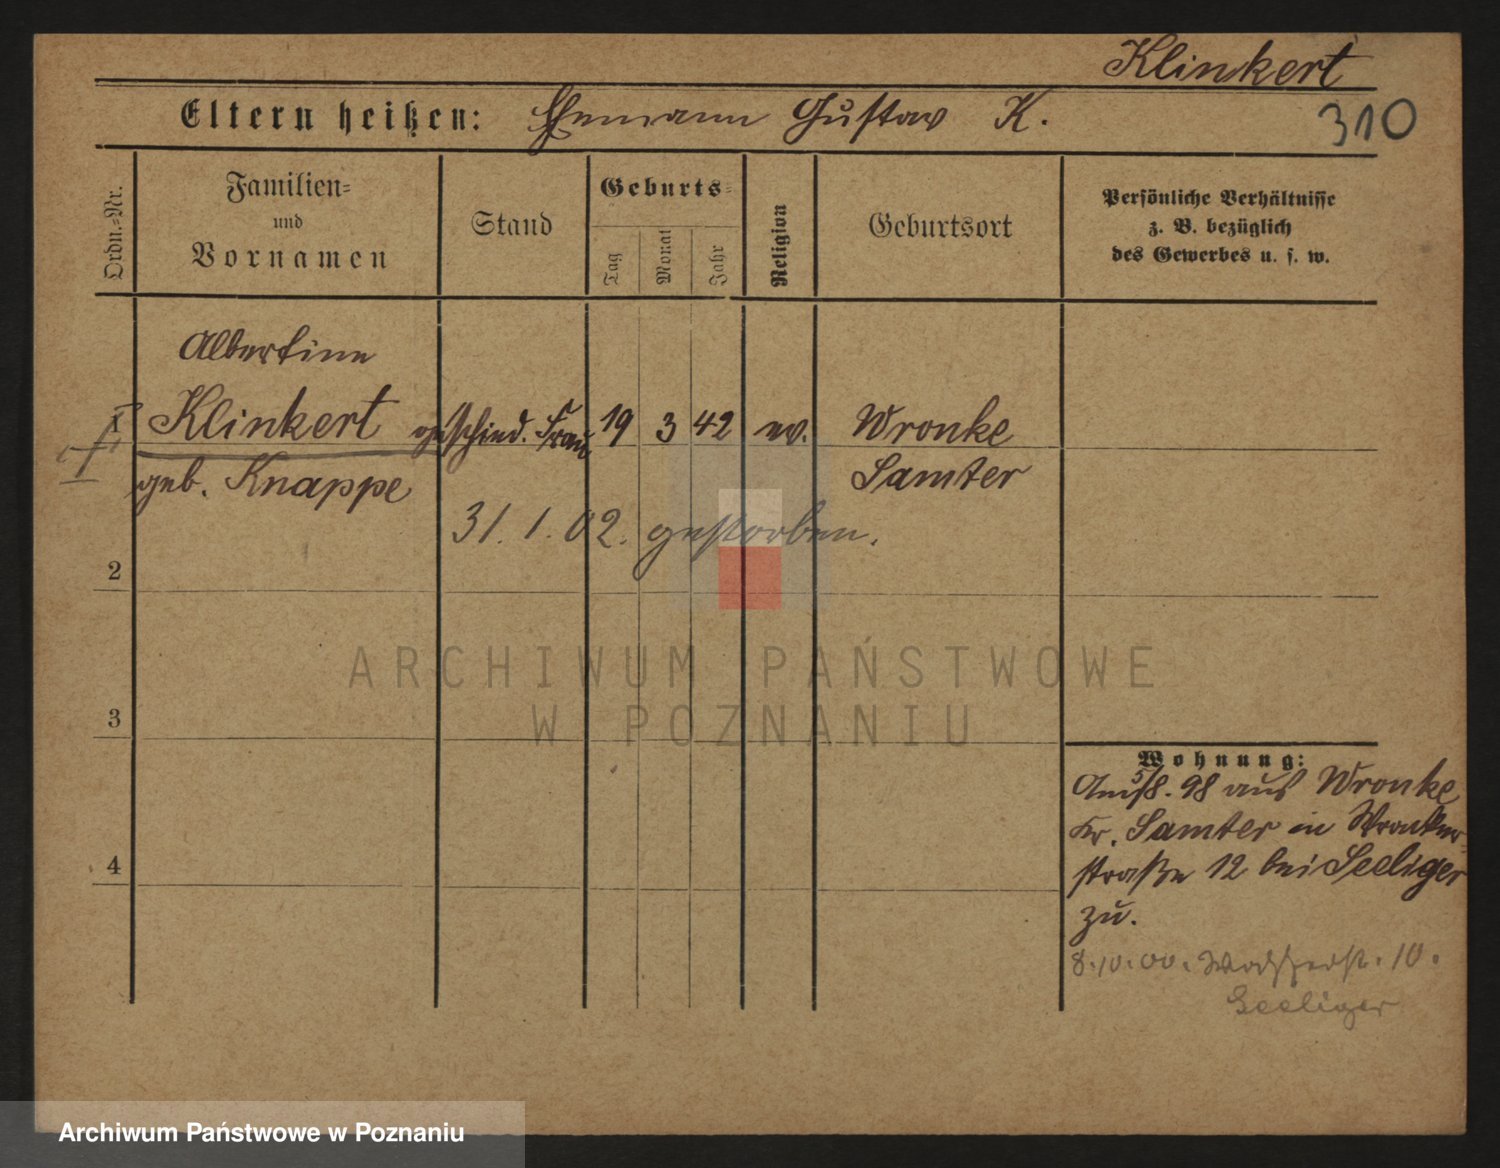 Klinkert
Eltern heißen: Ehemann Gustav K.
310
Ordn.-Nr.
Familien-
und
Vornamen
Stand
Geburts-
Tag
Monat
Jahr
Religion
Geburtsort
Persönliche Verhältnisse
z. B. bezüglich
des Gewerbes u. s. w.
Albertine
1 Klinkert geschied. Frau 19 3 42 ev. Wronke
geb. Knappe Samter
31. 1. 02. gestorben.
2
ARCHIWUM PAŃSTWOWE
W POZNANIU
3
Wohnung:
5/8. 98 aus Wronke
Kr. Samter in Wronker-
straße 12 bei Seeliger
zu.
4
8.10.00. 10.
Seeliger
Archiwum Państwowe w Poznaniu